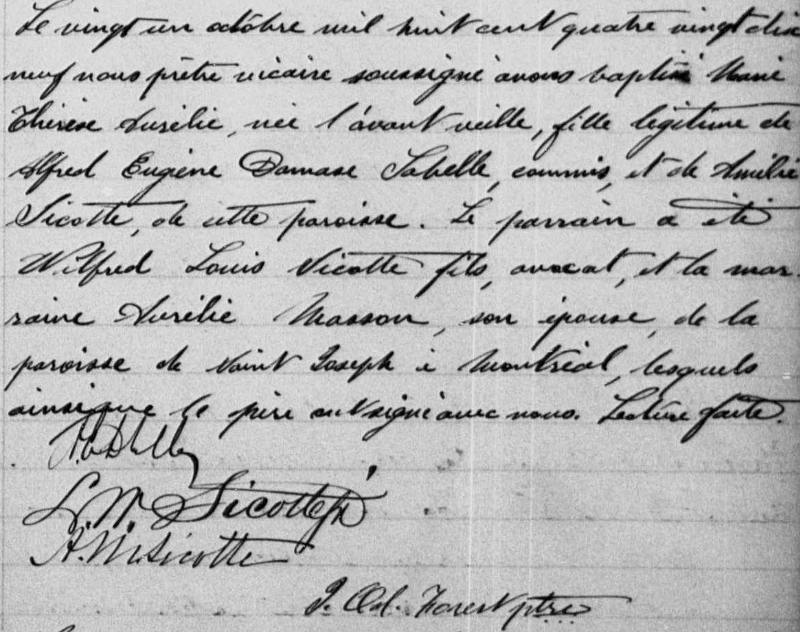 Le vingt un octobre mil huit cent quatre vingt dix
neuf nous prêtre vicaire soussigné avons baptisé Marie
Thérèse Aurélie, née l'avant veille, fille légitime de
Alfred Eugène Damase Labelle, commis, et de Amélie
Sicotte, de cette paroisse. Le parrain a été
Wilfred Louis Sicotte fils, avocat, et la mar-
raine Aurélie Masson, son épouse, de la
paroisse de Saint Joseph à Montréal, lesquels
ainsi que le père ont signé avec nous. Lecture faite.
L. W. Sicotte, fils
A. M. Sicotte
J. Forest ptre